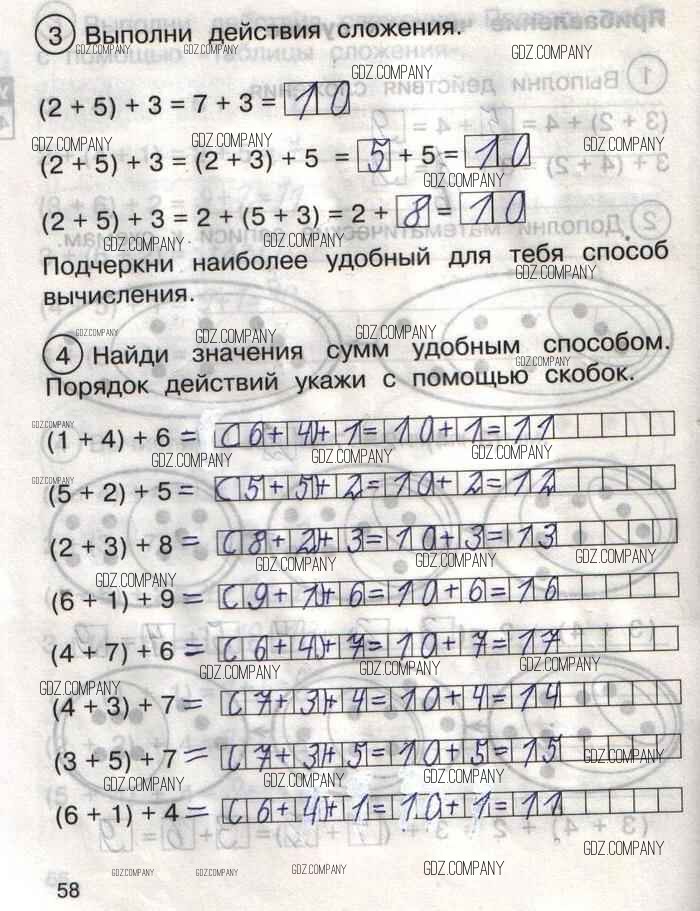 3 Выполни действия сложения.
(2 + 5) + 3 = 7 + 3 = 10
(2 + 5) + 3 = (2 + 3) + 5 = 5 + 5 = 10
(2 + 5) + 3 = 2 + (5 + 3) = 2 + 8 = 10
Подчеркни наиболее удобный для тебя способ
вычисления.
4 Найди значения сумм удобным способом.
Порядок действий укажи с помощью скобок.
(1 + 4) + 6 = (6+4)+1=10+1=11
(5 + 2) + 5 = (5+5)+2=10+2=12
(2 + 3) + 8 = (8+2)+3=10+3=13
(6 + 1) + 9 = (9+1)+6=10+6=16
(4 + 7) + 6 = (6+4)+7=10+7=17
(4 + 3) + 7 = (7+3)+4=10+4=14
(3 + 5) + 7 = (7+3)+5=10+5=15
(6 + 1) + 4 = (6+4)+1=10+1=11
58
GDZ.COMPANY